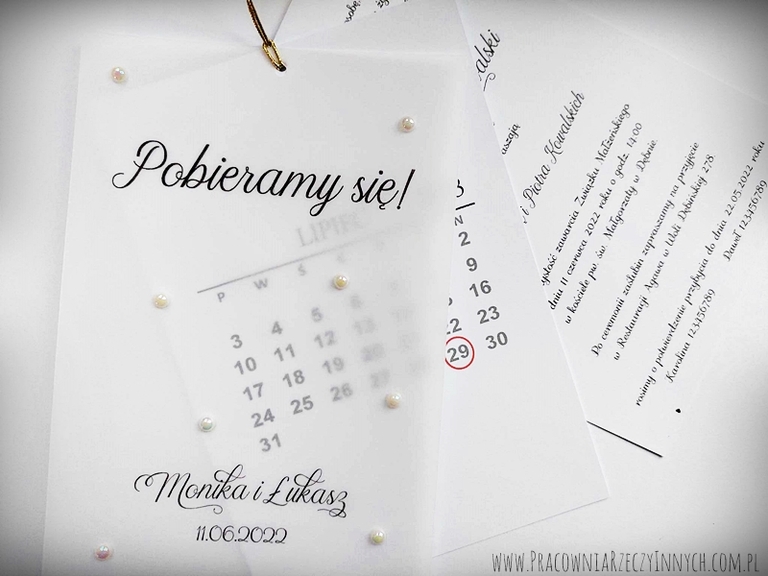 Pobieramy się!
LIPIEC
P W Ś C
2
3 4 5 6 9
10 11 12 13 16
17 18 19 20 22 23
24 25 26 27 29 30
31
N
Monika i Łukasz
11.06.2022
alski
i Piotra Kowalskich
zawarcia Związku Małżeńskiego
dniu 11 czerwca 2022 roku o godz. 14.00
w kościele pw. św. Małgorzaty w Dębnie.
Do ceremonii zaślubin zapraszamy na przyjęcie
w Restauracji Agawa w Woli Dębińskiej 278.
rosimy o potwierdzenie przybycia do dnia 22.05.2022 roku
Karolina 123456789 Paweł 123456789
www.PracowniaRzeczyInnych.com.pl